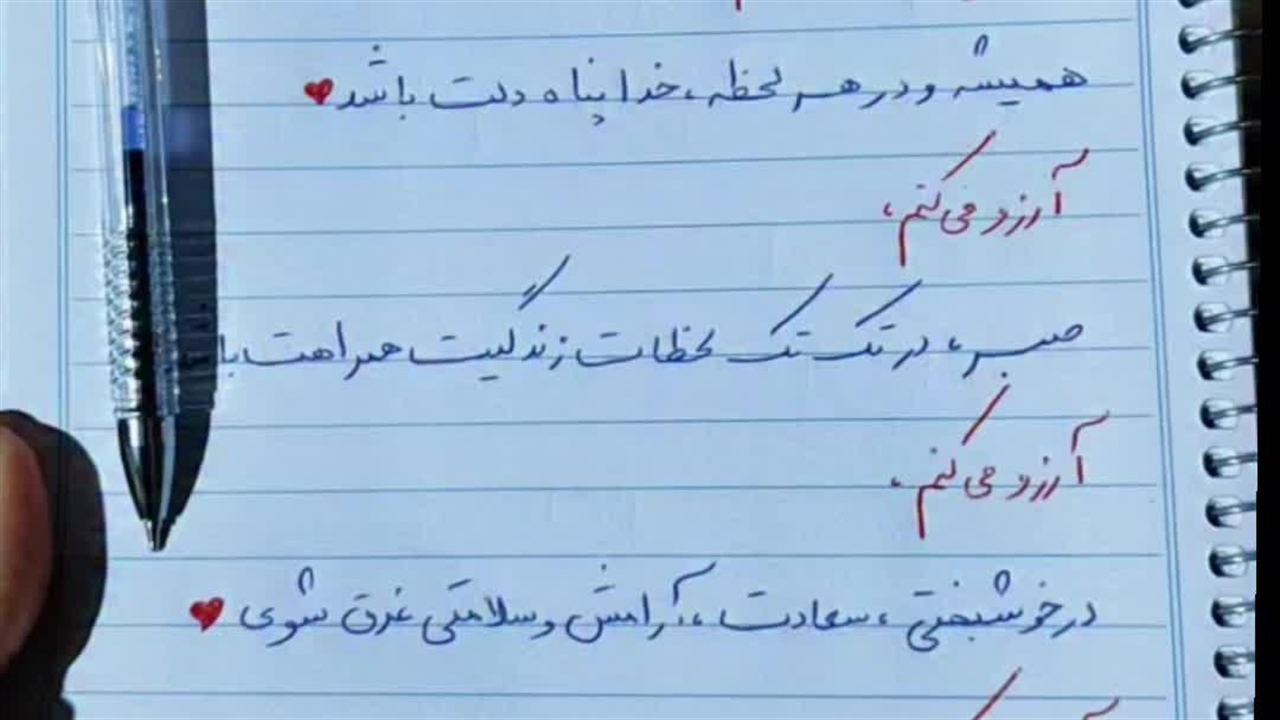 همیشه و در هر لحظه، خدا پناه دلت باشد
آرزو می‌کنم،
صبر، در تک تک لحظات زندگیت همراهت
آرزو می‌کنم،
در خوشبختی، سعادت، آرامش و سلامتی غرق شوی